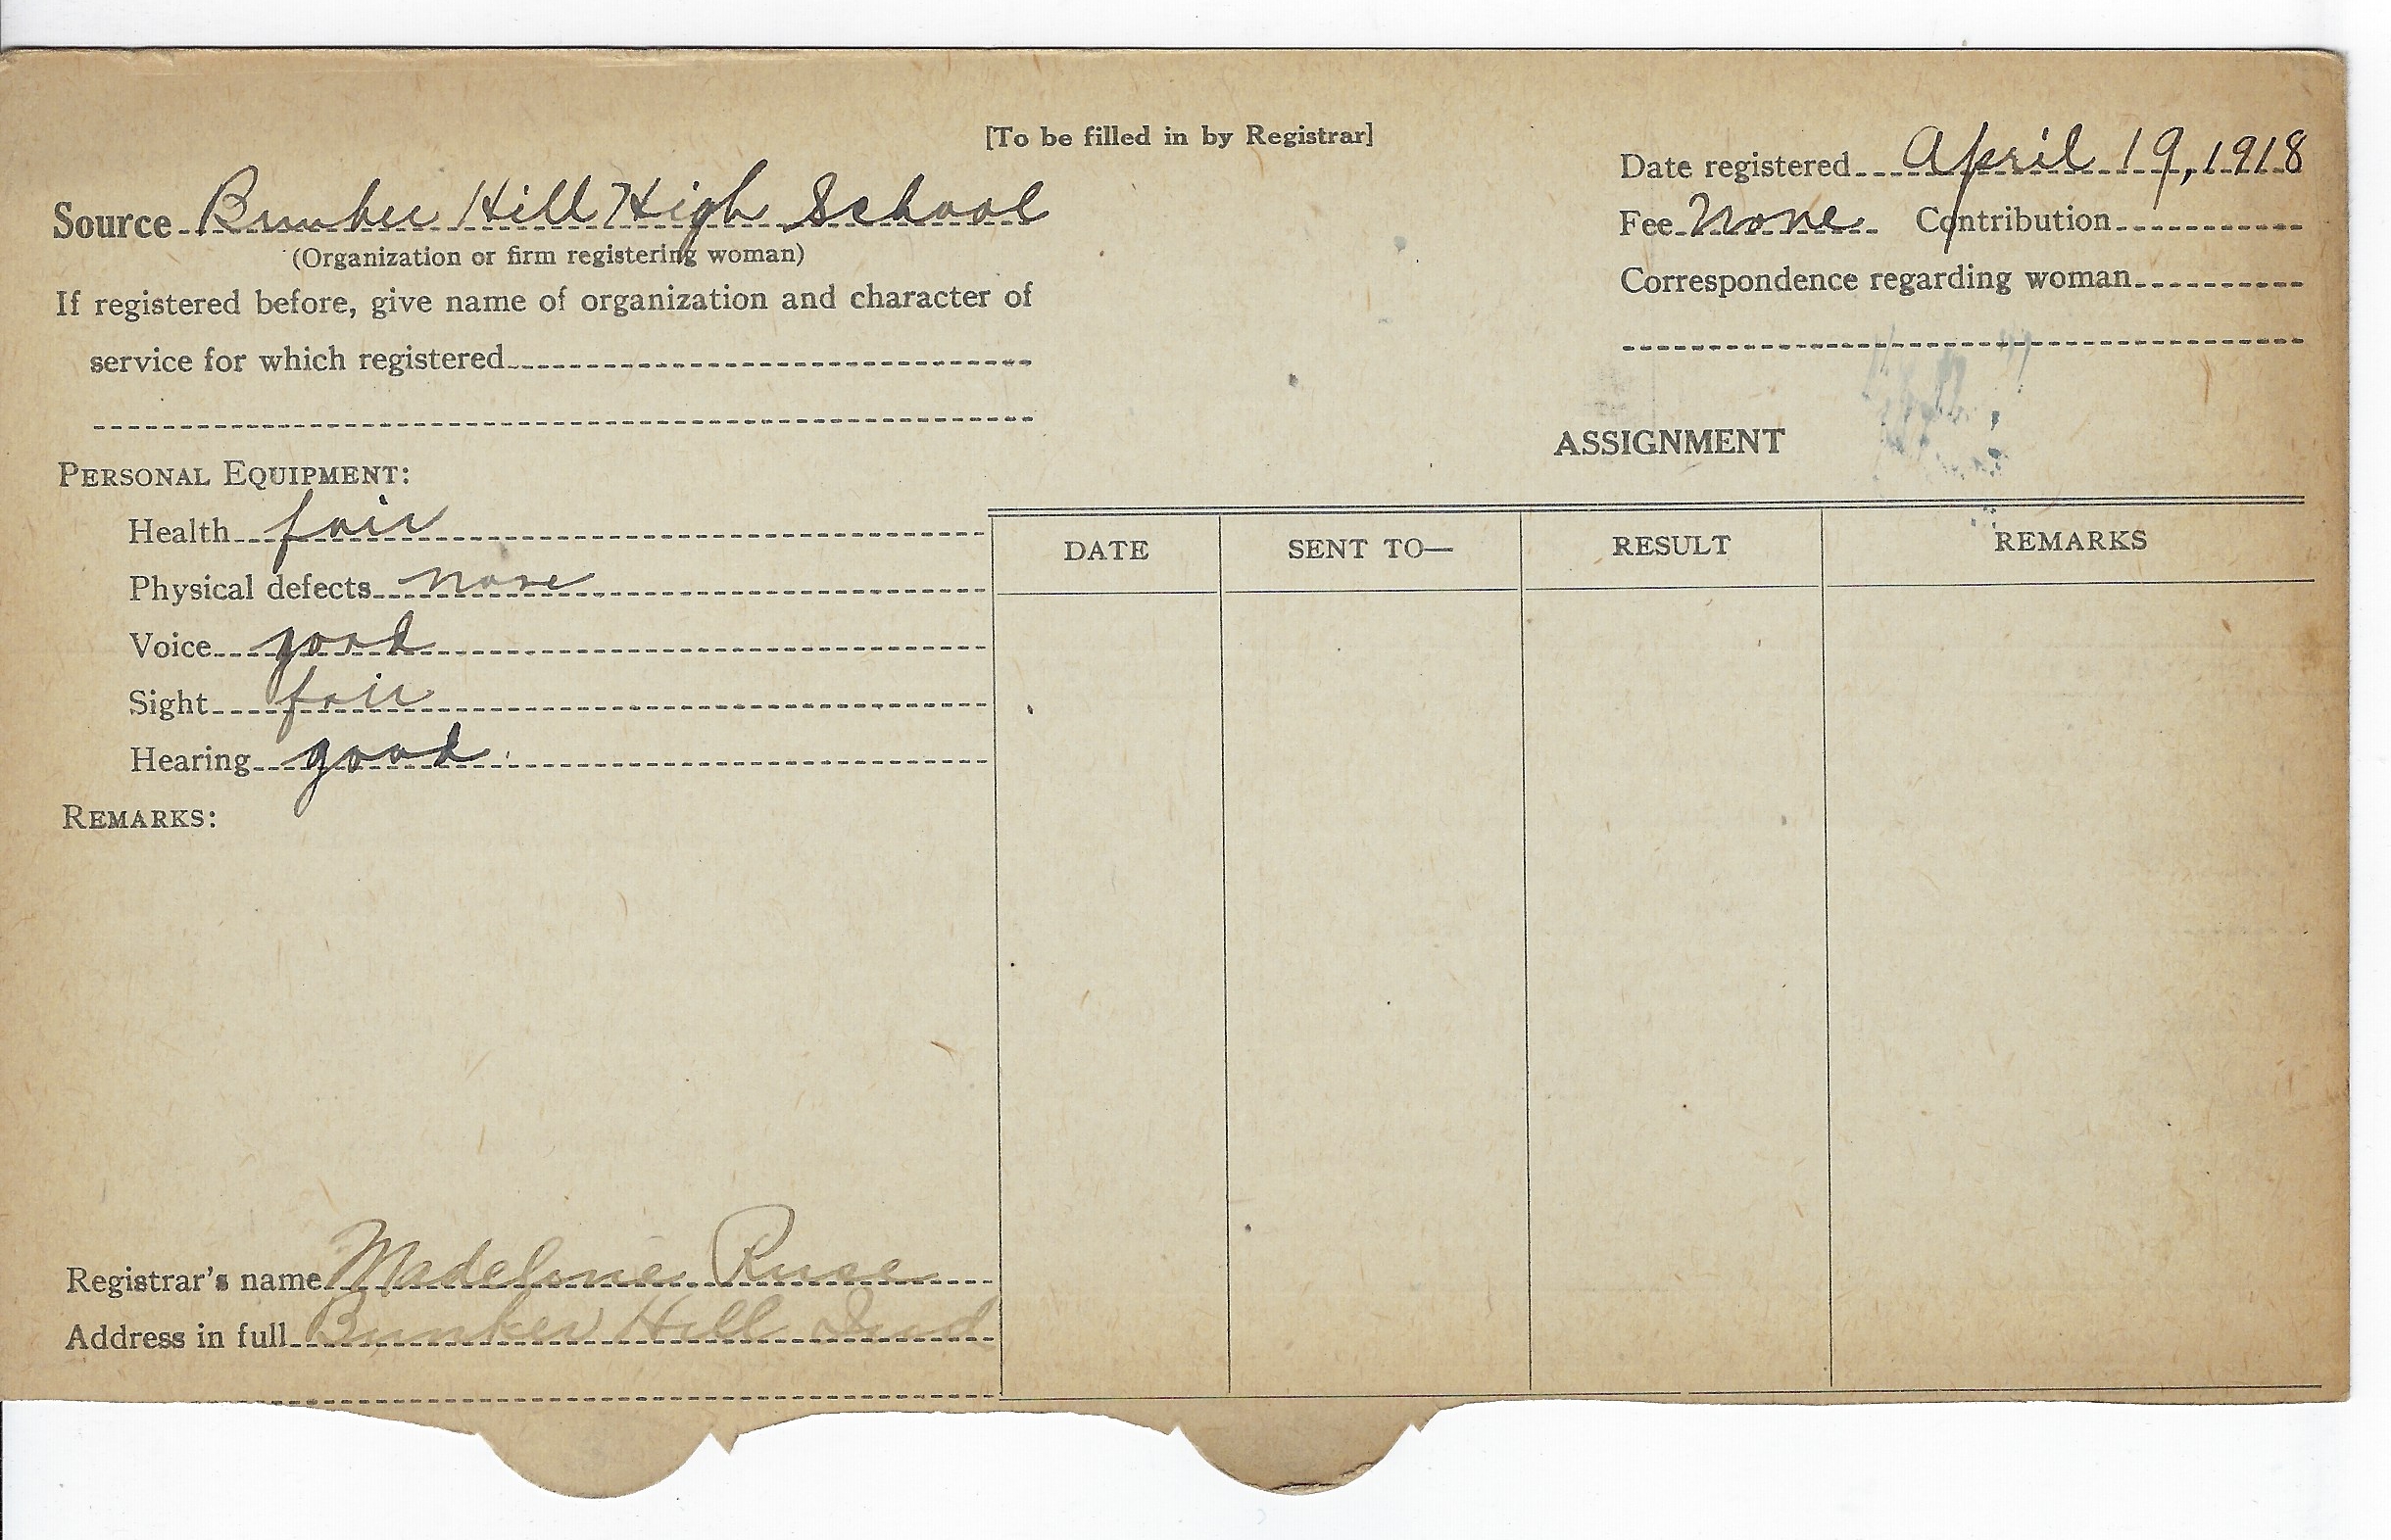 [To be filled in by Registrar]
Date registered April 19, 1918
Source Bunker Hill High School
Fee None Contribution
(Organization or firm registering woman)
Correspondence regarding woman
If registered before, give name of organization and character of
service for which registered
ASSIGNMENT
PERSONAL EQUIPMENT:
Health fair
Physical defects none
Voice good
Sight fair
Hearing good
REMARKS:
DATE SENT TO— RESULT REMARKS
Registrar's name Madeline Ruse
Address in full Bunker Hill Ind